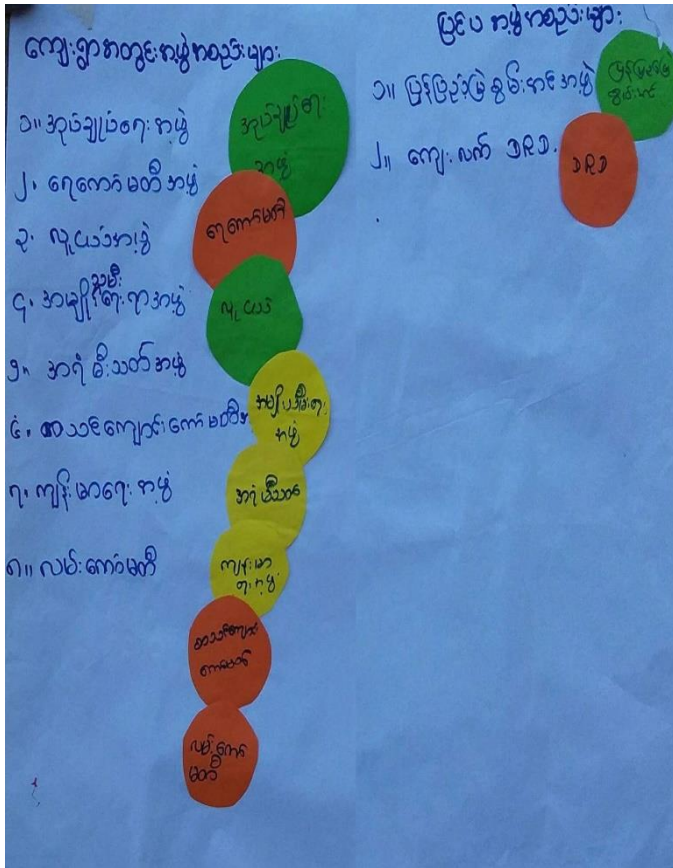 ကျေးရွာအတွင်းအဖွဲ့အစည်းများ
၁။ အုပ်ချုပ်ရေးအဖွဲ့
၂။ ရေကော်မတီအဖွဲ့
၃။ လူငယ်အဖွဲ့
၄။ အမျိုးသမီးရေးရာအဖွဲ့
၅။ အရံမီးသတ်အဖွဲ့
၆။ စာသင်ကျောင်းကော်မတီ
၇။ ကျန်းမာရေးအဖွဲ့
၈။ လမ်းကော်မတီ
အုပ်ချုပ်ရေး
အဖွဲ့
ရေကော်မတီ
လူငယ်
အဖွဲ့
အရံမီးသတ်
ကျန်းမာ
ရေးအဖွဲ့
စာသင်ကျောင်း
ကော်မတီ
လမ်းကော်
မတီ
ပြင်ပအဖွဲ့အစည်းများ
၁။ ပြန်ပြည်မြဲစွမ်းအင်အဖွဲ့
၂။ ကျေးလက် DRD.
ပြန်ပြည်မြဲ
စွမ်းအင်
DRD